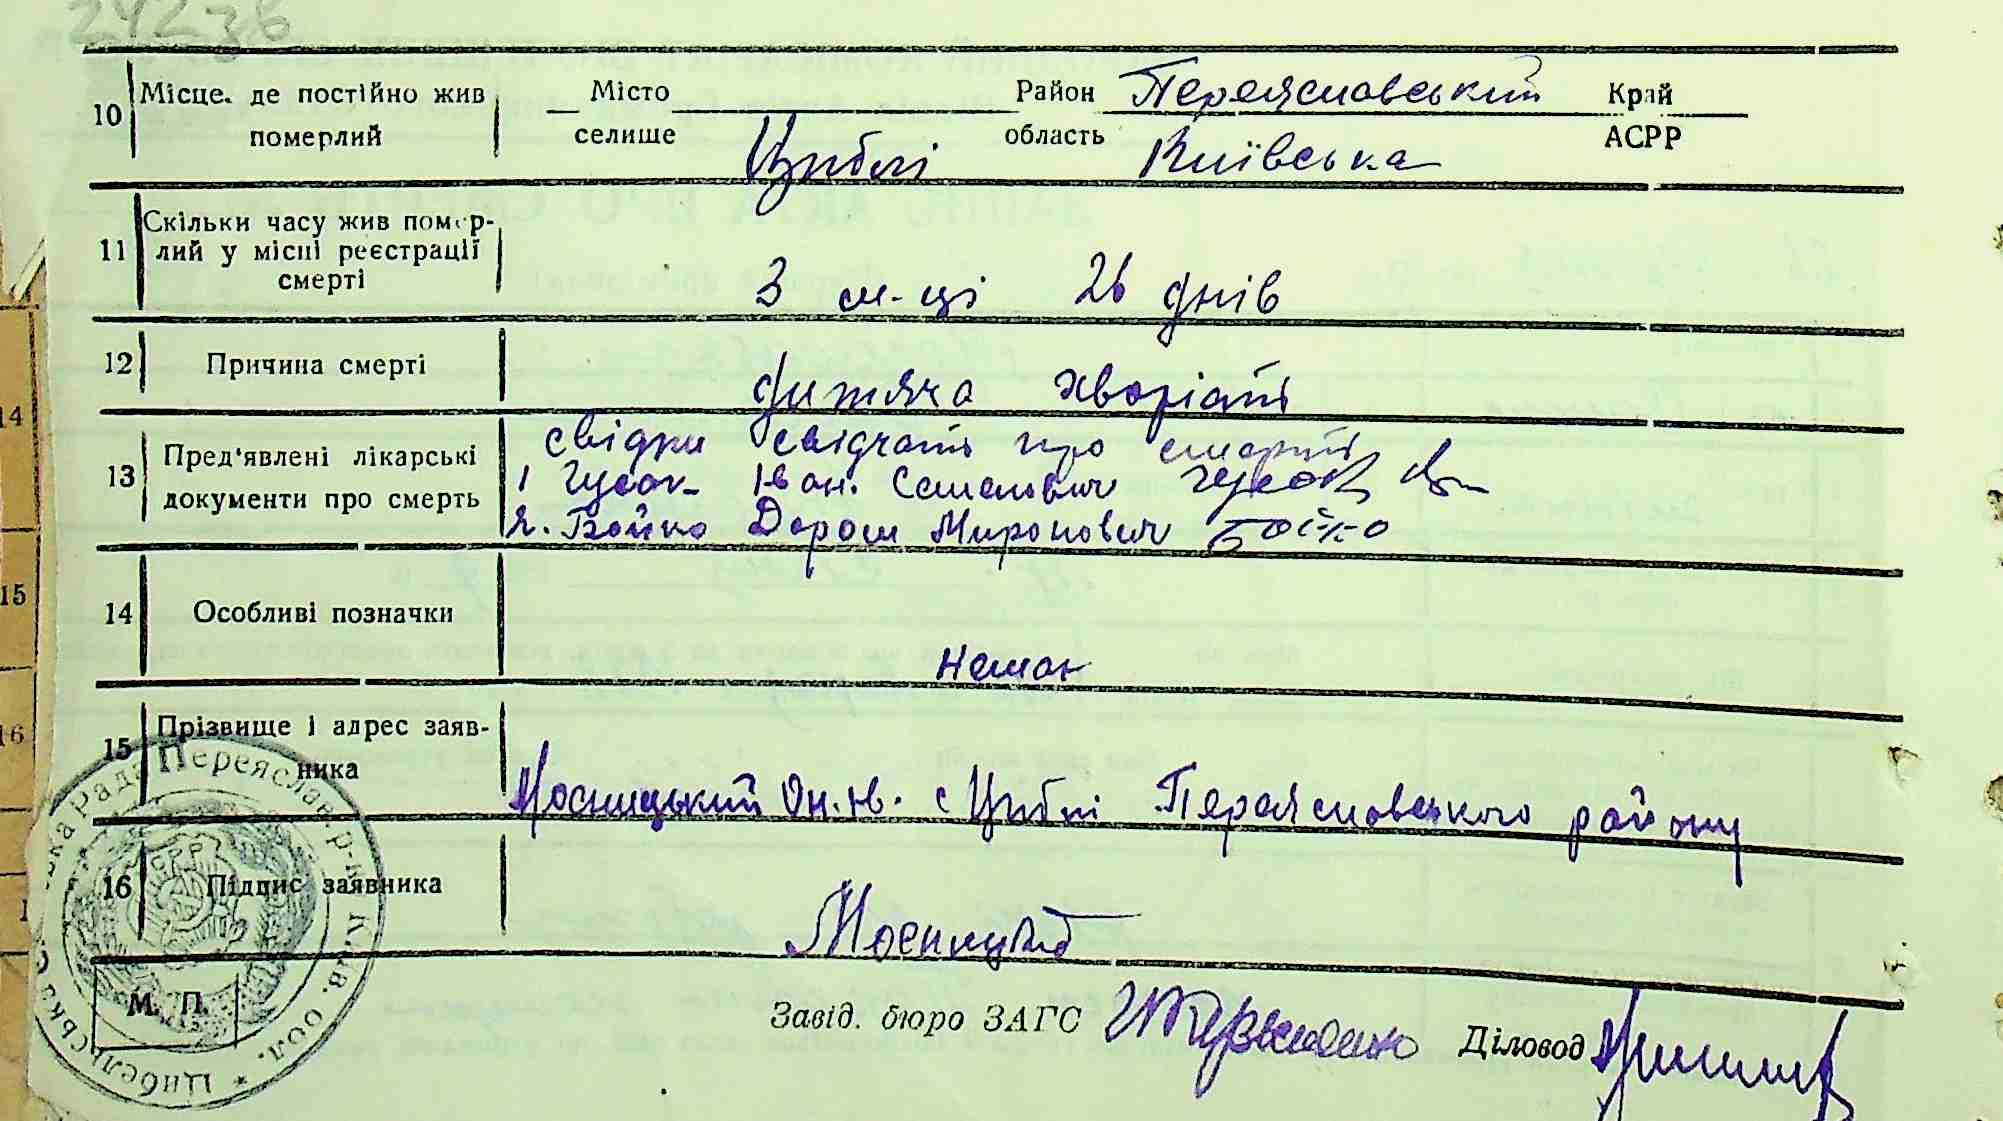 24238
10 Місце. де постійно жив померлий Місто селище Циблі Район Переяславський область Київська Край АСРР
11 Скільки часу жив помер-
лий у місці реєстрації
смерті 3 м-ці 26 днів
12 Причина смерті дитяча хворіать
13 Пред'явлені лікарські
документи про смерть свідки свідчать про смерть
1 Гусак Іван. Семенович Гусак
2. Бойко Дорош Миронович Бойко
14 Особливі позначки немає
15 Прізвище і адрес заяв-
ника Мосницький с Циблі Переяславського району
16 Підпис заявника
М. П.
Завід. бюро ЗАГС Діловод
Цибельська Сільська Рада Переяслав. р-н Київ. обл.